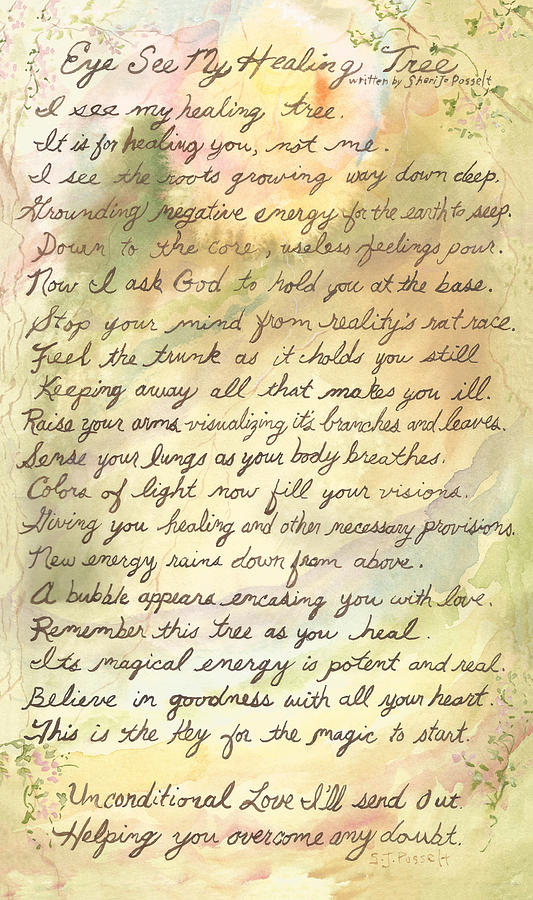 Eye See My Healing Tree
written by SheriJo Posselt
I see my healing tree.
It is for healing you, not me.
I see the roots growing way down deep.
Grounding negative energy for the earth to seep.
Down to the core, useless feelings pour.
Now I ask God to hold you at the base.
Stop your mind from reality's rat race.
Feel the trunk as it holds you still
Keeping away all that makes you ill.
Raise your arms visualizing it's branches and leaves.
Sense your lungs as your body breathes.
Colors of light now fill your visions.
Giving you healing and other necessary provisions.
New energy rains down from above.
A bubble appears encasing you with love.
Remember this tree as you heal.
Its magical energy is potent and real.
Believe in goodness with all your heart.
This is the Key for the magic to start.
Unconditional Love I'll send out.
Helping you overcome any doubt.
S.J. Posselt